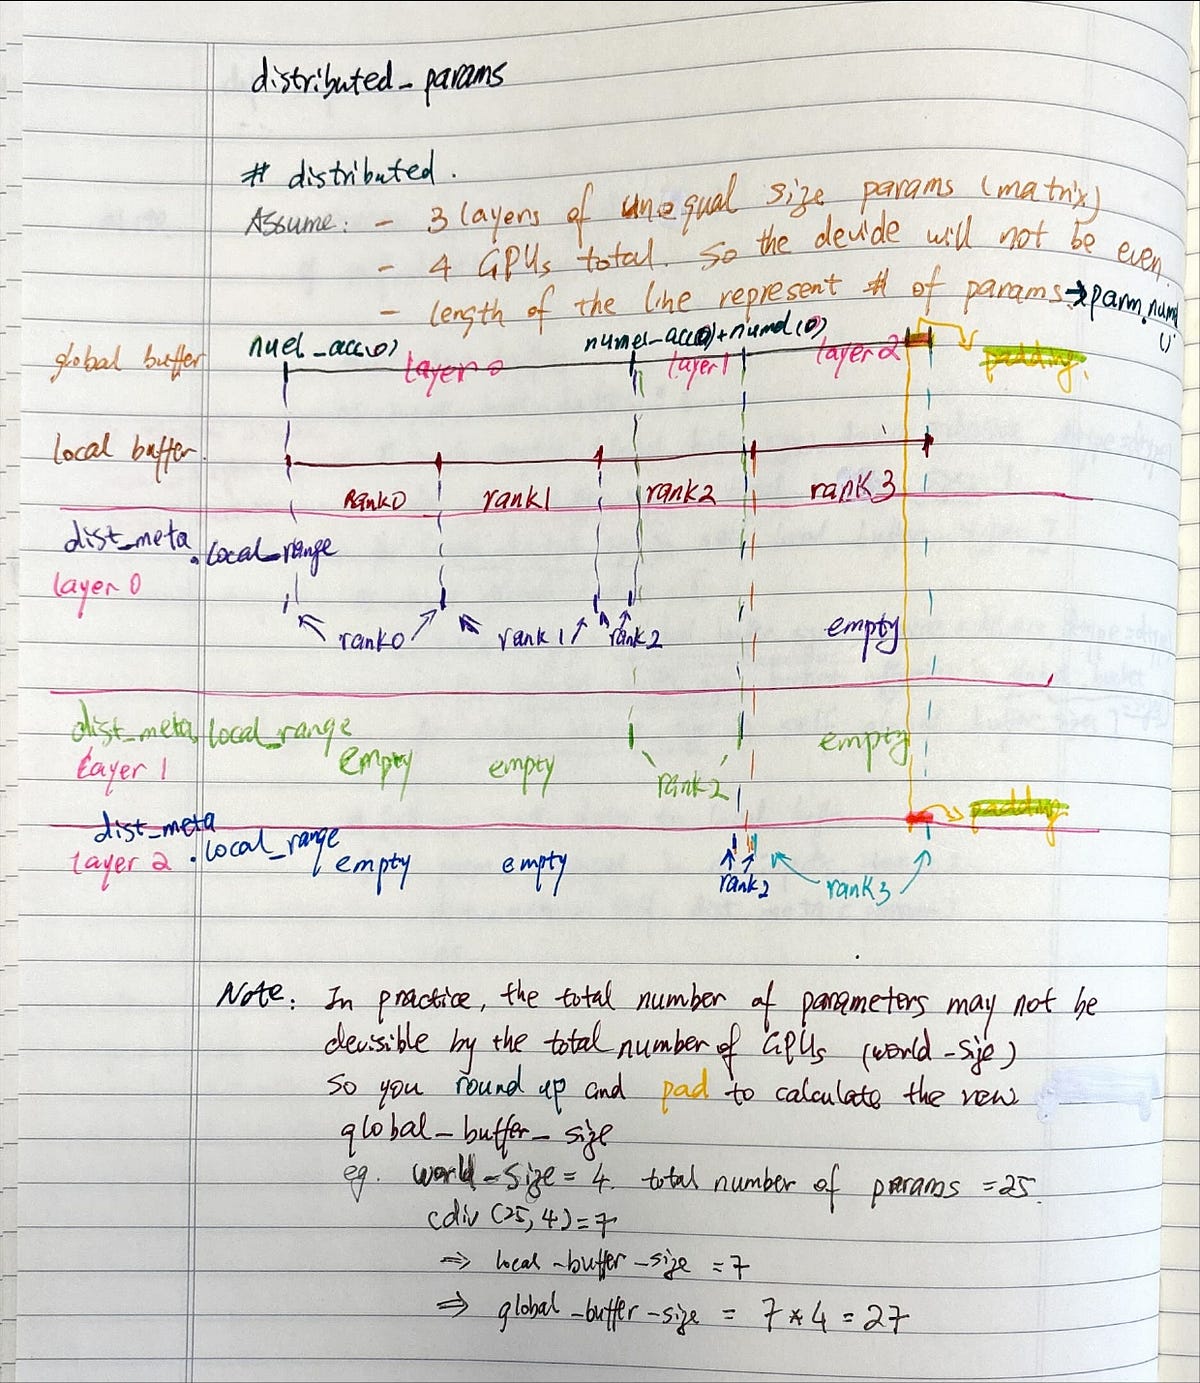 distributed_params
# distributed.
Assume: - 3 layers of unequal size params (matrix)
- 4 GPUs total. So the devide will not be even
- length of the line represent # of params → parm.numel
()
global buffer nuel_acc(0) layer 0 numel_acc(0)+numel(0) layer 1 layer 2 padding
local buffer
rank0 rank1 rank2 rank3
dist_meta
.local_range
layer 0
rank0 rank1 rank2 empty
dist_meta.local_range
Layer 1 empty empty rank2 empty
padding
dist_meta
.local_range
layer 2 empty empty rank2 rank3
Note: In practice, the total number of parameters may not be
devisible by the total number of GPUs (world-size)
so you round up and pad to calculate the new
global_buffer_size
eg. world-size = 4. total number of params = 25.
cdiv (25, 4) = 7
⇒ local-buffer-size = 7
⇒ global-buffer-size = 7 * 4 = 27